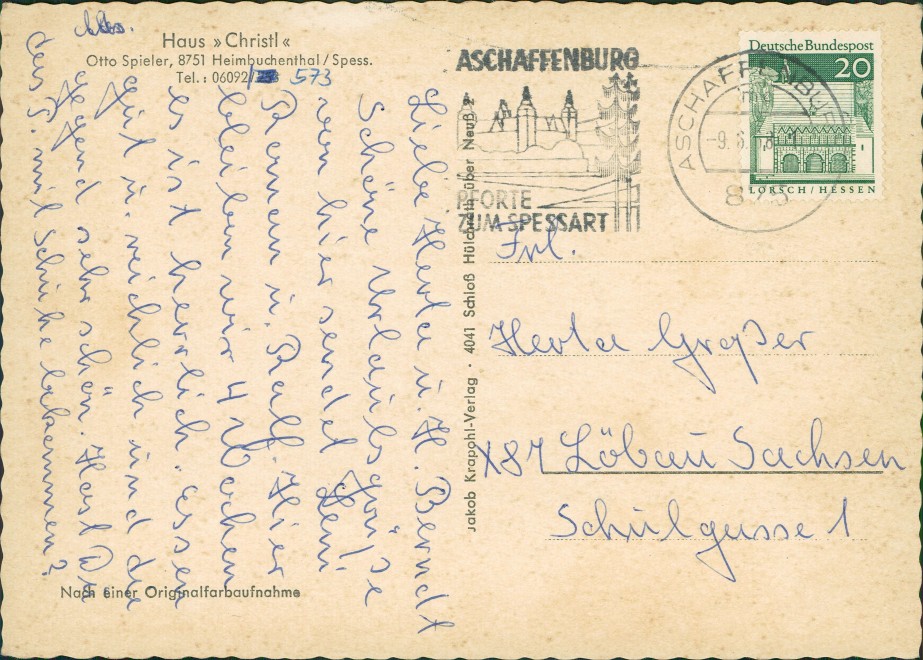 Haus »Christl«
Otto Spieler, 8751 Heimbuchenthal/Spess.
Tel.: 06092/ 573
Liebe Herta u. H. Berndt
Schöne Urlaubsgrüße
von hier sendet Heni
Roman u. Ralf. Hier
bleiben wir 4 Wochen
es ist herrlich. essen
gut u. reichlich und die
Gegend sehr schön. Hast Du
das P. mit Schuhe bekommen?
Nach einer Originalfarbaufnahme
Jakob Krapohl-Verlag · 4041 Schloß Hülchrath über Neuß 2
ASCHAFFENBURG
PFORTE
ZUM SPESSART
ASCHAFFENBURG
-9. 6. 68
875
Deutsche Bundespost
20
LORSCH/HESSEN
Frl.
Herta Großer
X87 Löbau Sachsen
Schulgasse 1